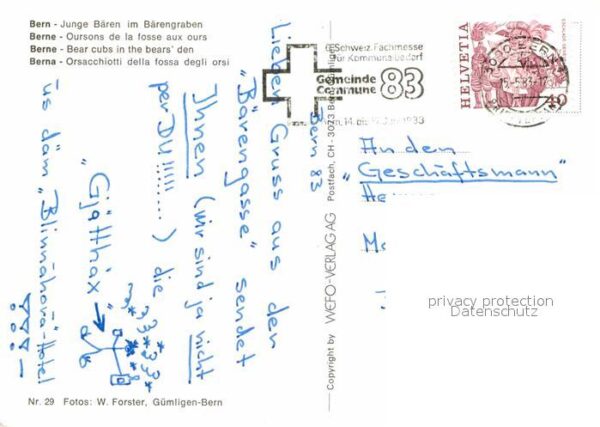 Bern - Junge Bären im Bärengraben
Berne - Oursons de la fosse aux ours
Berne - Bear cubs in the bears' den
Berna - Orsacchiotti della fossa degli orsi
6. Schweiz. Fachmesse
für Kommunalbedarf
Gemeinde
Commune 83
HELVETIA
40
3000 BERN
Bern 83
Lieben Gruss aus der
"Bärengasse" sendet
Ihnen (wir sind ja nicht
per DU!!!!! ........) die
"Gjätthäx"
us däm "Blinnähova-Hotel
An den
"Geschäftsmann"
He
privacy protection
Datenschutz
Copyright by WEFO-VERLAG AG Postfach, CH-3073
Nr. 29 Fotos: W. Forster, Gümligen-Bern